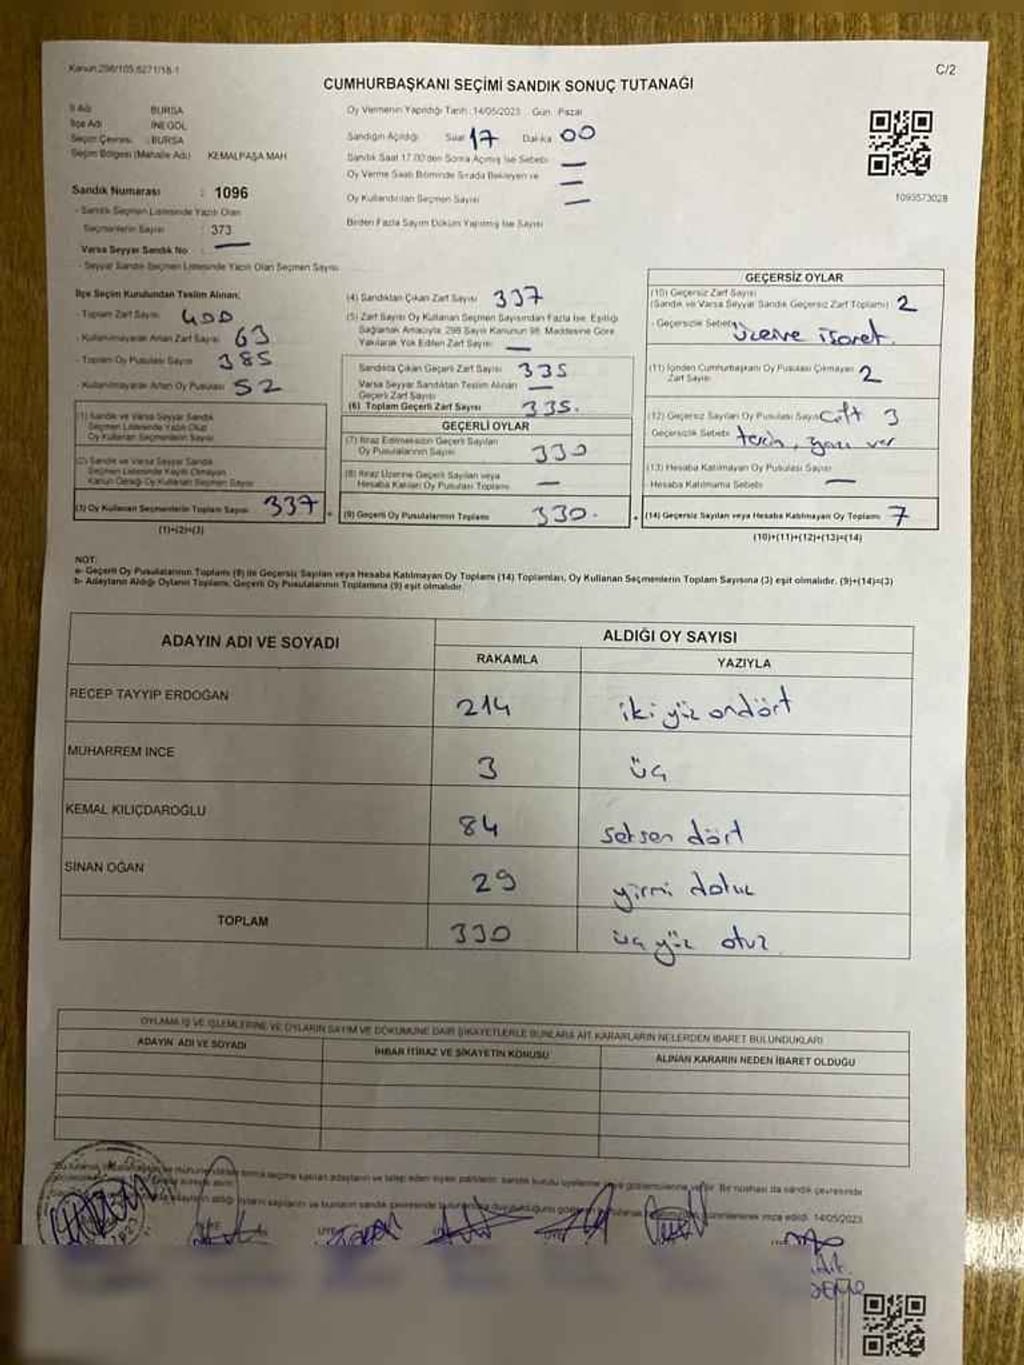 Kanun:298/105,6271/18-1
C/2
CUMHURBAŞKANI SEÇİMİ SANDIK SONUÇ TUTANAĞI
İl Adı BURSA
İlçe Adı İNEGÖL
Seçim Çevresi : BURSA
Seçim Bölgesi (Mahalle Adı) KEMALPAŞA MAH
Sandık Numarası : 1096
- Sandık Seçmen Listesinde Yazılı Olan
Seçmenlerin Sayısı : 373
Varsa Seyyar Sandık No : —
- Seyyar Sandık Seçmen Listesinde Yazılı Olan Seçmen Sayısı
Oy Vermenin Yapıldığı Tarih :14/05/2023 Gün : Pazar
Sandığın Açıldığı Saat 17 Dakika 00
Sandık Saat 17.00'den Sonra Açılmış İse Sebebi —
Oy Verme Saati Bitiminde Sırada Bekleyen ve —
Oy Kullandırılan Seçmen Sayısı —
Birden Fazla Sayım Döküm Yapılmış İse Sayısı
1093573028
İlçe Seçim Kurulundan Teslim Alınan;
- Toplam Zarf Sayısı 400
- Kullanılmayarak Artan Zarf Sayısı 63
- Toplam Oy Pusulası Sayısı 385
- Kullanılmayarak Artan Oy Pusulası 52
(1) Sandık ve Varsa Seyyar Sandık
Seçmen Listesinde Yazılı Olup
Oy Kullanan Seçmenlerin Sayısı
(2) Sandık ve Varsa Seyyar Sandık
Seçmen Listesinde Yazılı Olmayan
Kanun Gereği Oy Kullanan Seçmen Sayısı
(3) Oy Kullanan Seçmenlerin Toplam Sayısı 337
(1)+(2)=(3)
(4) Sandıktan Çıkan Zarf Sayısı 337
(5) Zarf Sayısı Oy Kullanan Seçmen Sayısından Fazla İse, Eşitliği
Sağlamak Amacıyla, 298 Sayılı Kanunun 98. Maddesine Göre
Yakılarak Yok Edilen Zarf Sayısı —
Sandıkta Çıkan Geçerli Zarf Sayısı 335
Varsa Seyyar Sandıktan Teslim Alınan —
Geçerli Zarf Sayısı
(6) Toplam Geçerli Zarf Sayısı 335.
GEÇERLİ OYLAR
(7) İtiraz Edilmeksizin Geçerli Sayılan
Oy Pusulalarının Sayısı 330
(8) İtiraz Üzerine Geçerli Sayılan veya
Hesaba Katılan Oy Pusulası Toplamı —
(9) Geçerli Oy Pusulalarının Toplamı 330.
GEÇERSİZ OYLAR
(10) Geçersiz Zarf Sayısı
(Sandık ve Varsa Seyyar Sandık Geçersiz Zarf Toplamı) 2
- Geçersizlik Sebebi üzerine işaret.
(11) İçinden Cumhurbaşkanı Oy Pusulası Çıkmayan
Zarf Sayısı 2
(12) Geçersiz Sayılan Oy Pusulası Sayısı Çift 3
Geçersizlik Sebebi tercih, yazı var
(13) Hesaba Katılmayan Oy Pusulası Sayısı
- Hesaba Katılmama Sebebi —
(14) Geçersiz Sayılan veya Hesaba Katılmayan Oy Toplamı 7
(10)+(11)+(12)+(13)=(14)
NOT:
a- Geçerli Oy Pusulalarının Toplamı (9) ile Geçersiz Sayılan veya Hesaba Katılmayan Oy Toplamı (14) Toplamları, Oy Kullanan Seçmenlerin Toplam Sayısına (3) eşit olmalıdır. (9)+(14)=(3)
b- Adayların Aldığı Oyların Toplamı, Geçerli Oy Pusulalarının Toplamına (9) eşit olmalıdır.
ADAYIN ADI VE SOYADI ALDIĞI OY SAYISI
RAKAMLA YAZIYLA
RECEP TAYYIP ERDOĞAN 214 iki yüz ondört
MUHARREM İNCE 3 üç
KEMAL KILIÇDAROĞLU 84 seksen dört
SİNAN OĞAN 29 yirmi dokuz
TOPLAM 330 üç yüz otuz
OYLAMA İŞ VE İŞLEMLERİNE VE OYLARIN SAYIM VE DÖKÜMÜNE DAİR ŞİKAYETLERLE BUNLARA AİT KARARLARIN NELERDEN İBARET BULUNDUKLARI
ADAYIN ADI VE SOYADI İHBAR İTİRAZ VE ŞİKAYETİN KONUSU ALINAN KARARIN NEDEN İBARET OLDUĞU